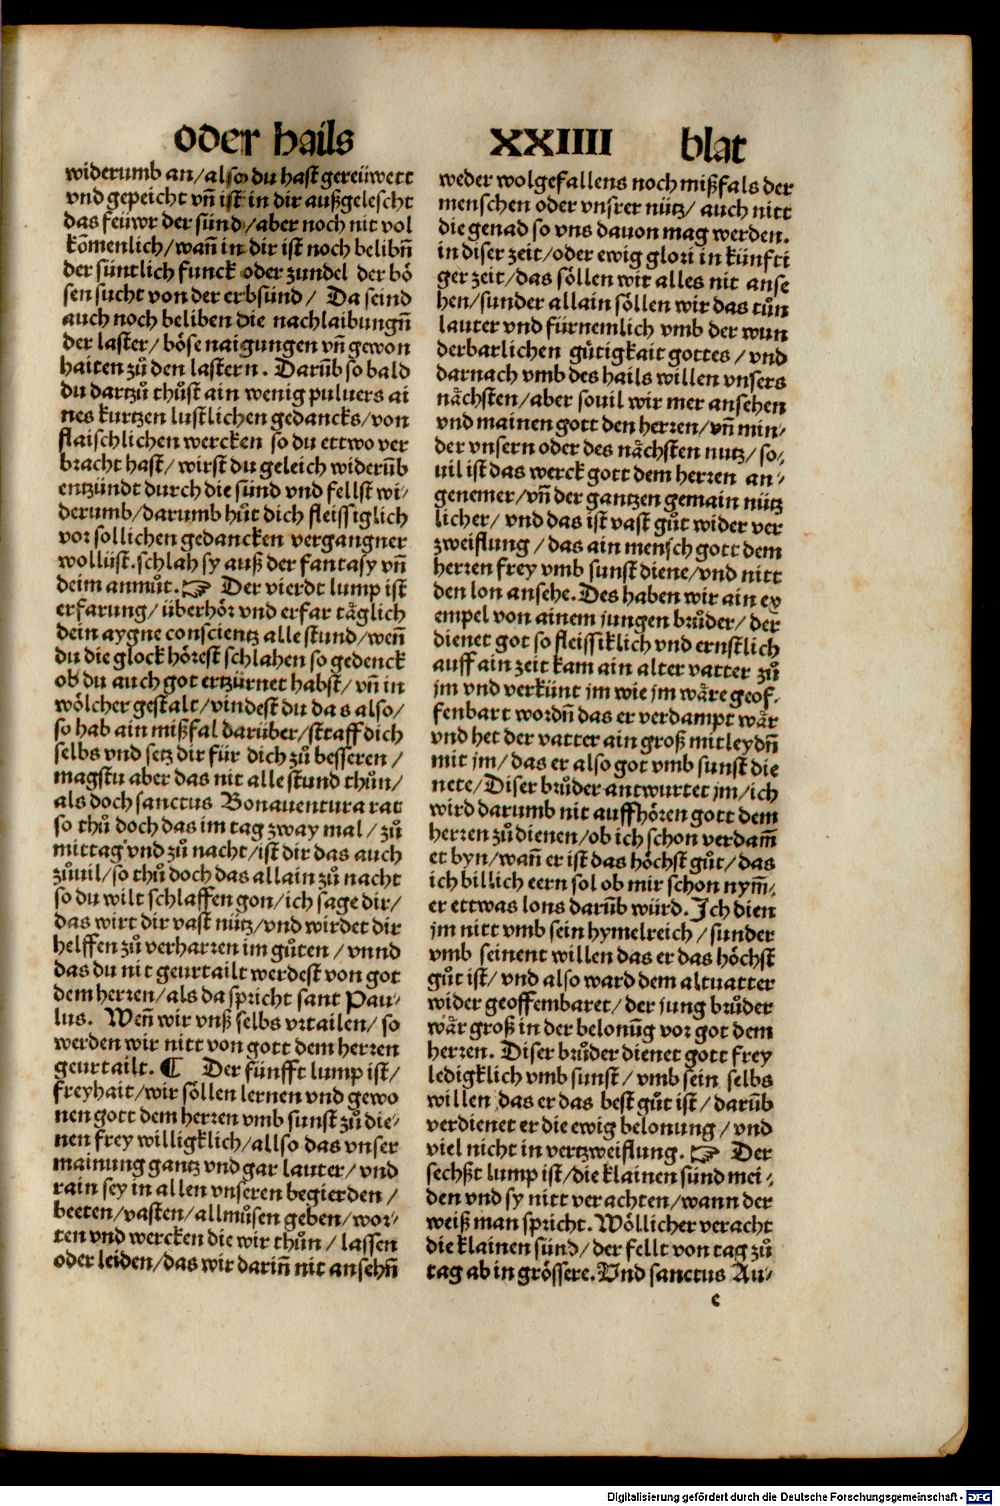 oder hails XXIIII blat
widerumb an/also du hast gereüwett
vnd gepeicht vñ ist in dir außgelescht
das feüwr der sünd/aber noch nit vol
kõmenlich/wañ in dir ist noch belibñ
der süntlich funck oder zundel der bö
sen sucht von der erbsünd/ Da seind
auch noch beliben die nachlaibungñ
der laster/böse naigungen vñ gewon
haiten zů den lastern. Darũb so bald
du dartzů thůst ain wenig puluers ai
nes kurtzen lustlichen gedancks/von
flaischlichen wercken so du ettwo ver
bracht hast/wirst du geleich widerũb
entzündt durch die sünd vnd fellst wi⸗
derumb/darumb hüt dich fleissiglich
vor sollichen gedancken vergangner
wollüst.schlah sy auß der fantasy vñ
deim anmůt.☞ Der vierdt lump ist
erfarung/überhör vnd erfar täglich
dein aygne conscientz alle stund/weñ
du die glock hörest schlahen so gedenck
ob du auch got ertzürnet habst/vñ in
wölcher gestalt/vindest du das also/
so hab ain mißfal darüber/straff dich
selbs vnd setz dir für dich zů besseren/
magstu aber das nit alle stund thůn/
als doch sanctus Bonauentura rat
so thů doch das im tag zway mal/zů
mittag vnd zů nacht/ist dir das auch
zůuil/so thů doch das allain zů nacht
so du wilt schlaffen gon/ich sage dir/
das wirt dir vast nütz/vnd wirdet dir
helffen zů verharren im gůten/vnnd
das du nit geurtailt werdest von got
dem herren/als da spricht sant Pau⸗
lus. Weñ wir vnß selbs vrtailen/so
werden wir nitt von gott dem herren
geurtailt. ¶ Der fünfft lump ist/
freyhait/wir söllen lernen vnd gewo
nen gott dem herren vmb sunst zů die⸗
nen frey willigklich/allso das vnser
mainung gantz vnd gar lauter/vnd
rain sey in allen vnseren begierden/
beeten/vasten/allmůsen geben/wor⸗
ten vnd wercken die wir thůn/lassen
oder leiden/das wir dariñ nit ansehñ
weder wolgefallens noch mißfals der
menschen oder vnsrer nütz/auch nitt
die genad so vns dauon mag werden.
in diser zeit/oder ewig glori in künfti
ger zeit/das söllen wir alles nit anse
hen/sunder allain söllen wir das tůn
lauter vnd fürnemlich vmb der wun
derbarlichen gütigkait gottes/vnd
darnach vmb des hails willen vnsers
nächsten/aber souil wir mer ansehen
vnd mainen gott den herren/vñ min⸗
der vnsern oder des nächsten nutz/so⸗
uil ist das werck gott dem herren an⸗
genemer/vñ der gantzen gemain nütz
licher/vnd das ist vast gůt wider ver
zweiflung/das ain mensch gott dem
herren frey vmb sunst diene/vnd nitt
den lon ansehe. Des haben wir ain ex
empel von ainem jungen brůder/der
dienet got so fleissiklich vnd ernstlich
auff ain zeit kam ain alter vatter zů
jm vnd verkünt jm wie jm wäre geof⸗
fenbart wordñ das er verdampt wär
vnd het der vatter ain groß mitleydñ
mit jm/das er also got vmb sunst die
nete/Diser brůder antwurtet jm/ich
wird darumb nit auffhören gott dem
herren zů dienen/ob ich schon verdam̃
et byn/wañ er ist das höchst gůt/das
ich billich eern sol ob mir schon nym̃⸗
er ettwas lons darũb würd. Ich dien
jm nitt vmb sein hymelreich/sunder
vmb seinent willen das er das höchst
gůt ist/vnd also ward dem altuatter
wider geoffembaret/der jung brůder
wär groß in der belonũg vor got dem
herren. Diser brůder dienet gott frey
ledigklich vmb sunst/vmb sein selbs
willen das er das best gůt ist/darũb
verdienet er die ewig belonung/vnd
viel nicht in vertzweiflung. ☞ Der
sechßt lump ist/die klainen sünd mei⸗
den vnd sy nitt verachten/wann der
weiß man spricht. Wöllicher veracht
die klainen sünd/der fellt von tag zů
tag ab in grössere. Vnd sanctus Au⸗
e
Digitalisierung gefördert durch die Deutsche Forschungsgemeinschaft - DFG